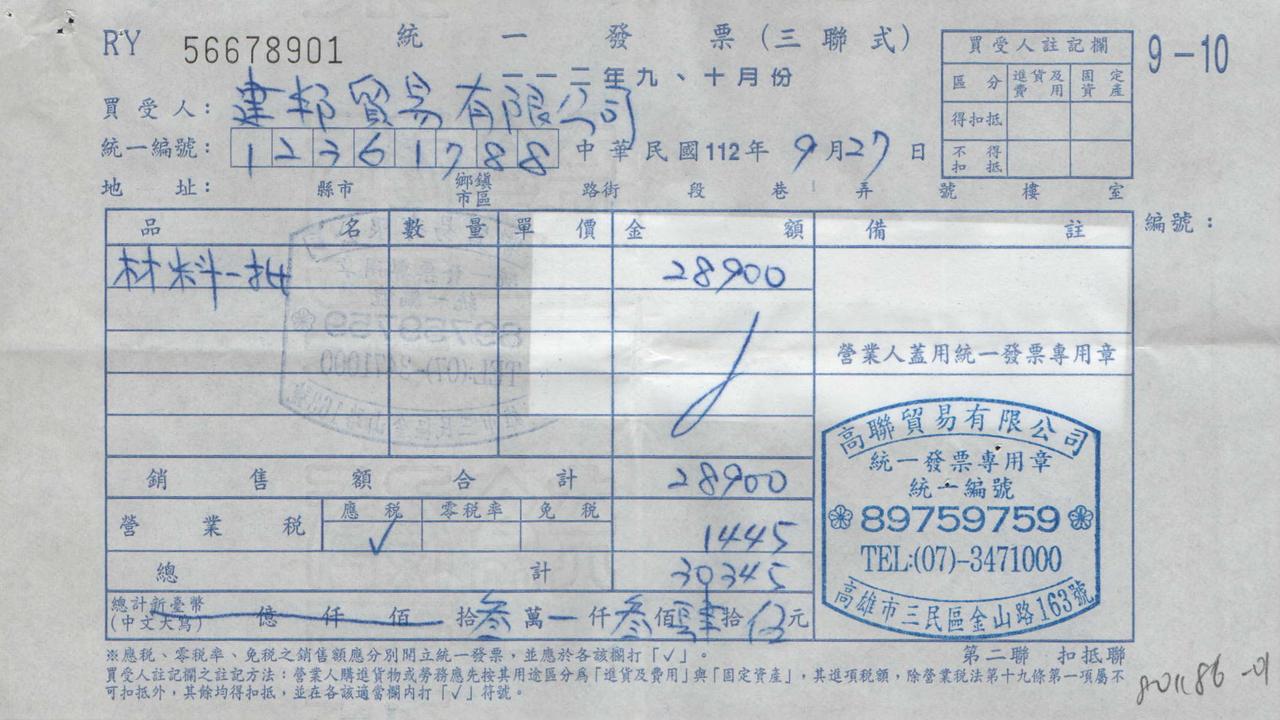 RY 56678901 統一發票(三聯式) 9-10
一一二年九、十月份
買受人: 建邦貿易有限公司
統一編號: 12361788 中華民國112年 9月27日
地址: 縣市 鄉鎮市區 路街 段 巷 弄 號 樓 室
買受人註記欄
區分 進貨及費用 固定資產
得扣抵
不得扣抵
品名 數量 單價 金額 備註 編號:
材料一批 28900
營業人蓋用統一發票專用章
銷售額合計 28900
營業稅 應稅 零稅率 免稅
✓ 1445
總計 30345
總計新臺幣(中文大寫) 億 仟 佰 拾 叁 萬 仟 叁 佰 肆 拾 伍 元
高聯貿易有限公司
統一發票專用章
統一編號
89759759
TEL:(07)-3471000
高雄市三民區金山路163號
※應稅、零稅率、免稅之銷售額應分別開立統一發票,並應於各該欄打「✓」。
第二聯 扣抵聯
買受人註記欄之註記方法:營業人購進貨物或勞務應先按其用途區分為「進貨及費用」與「固定資產」,其進項稅額,除營業稅法第十九條第一項屬不
可扣抵外,其餘均得扣抵,並在各該適當欄內打「✓」符號。